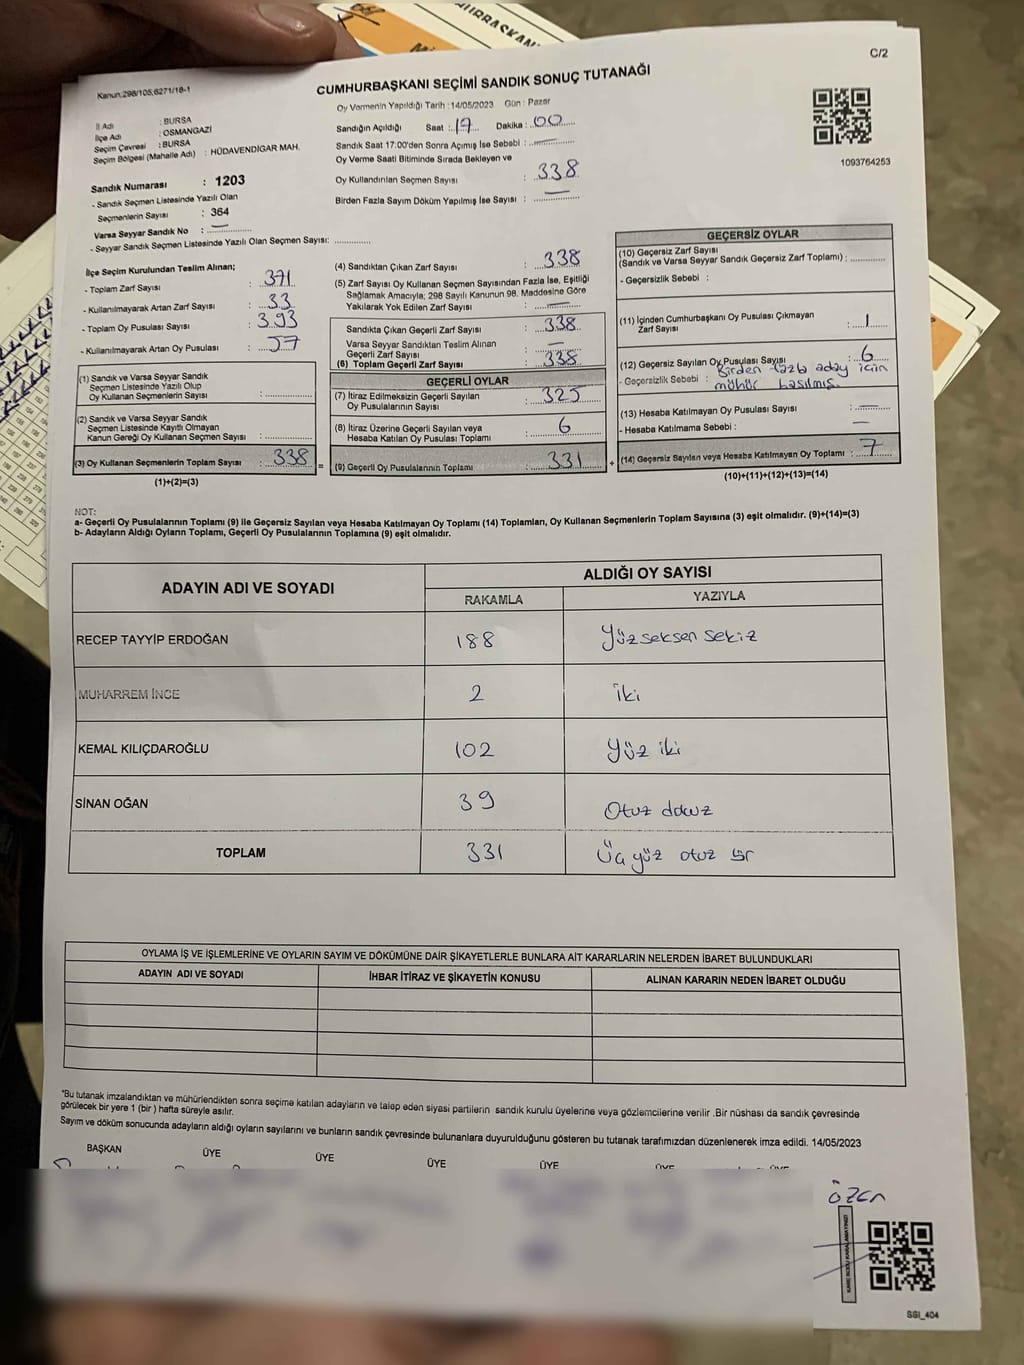 C/2
Kanun:298/105;6271/18-1
CUMHURBAŞKANI SEÇİMİ SANDIK SONUÇ TUTANAĞI
Oy Vermenin Yapıldığı Tarih :14/05/2023 Gün : Pazar
İl Adı : BURSA
İlçe Adı : OSMANGAZİ
Seçim Çevresi : BURSA
Seçim Bölgesi (Mahalle Adı) : HÜDAVENDİGAR MAH.
Sandığın Açıldığı Saat : 17 Dakika : 00
Sandık Saat 17:00'den Sonra Açımış İse Sebebi : —
Oy Verme Saati Bitiminde Sırada Bekleyen ve
Oy Kullandırılan Seçmen Sayısı : 338
Birden Fazla Sayım Döküm Yapılmış İse Sayısı : —
1093764253
Sandık Numarası : 1203
- Sandık Seçmen Listesinde Yazılı Olan
Seçmenlerin Sayısı : 364
Varsa Seyyar Sandık No : —
- Seyyar Sandık Seçmen Listesinde Yazılı Olan Seçmen Sayısı: ............
İlçe Seçim Kurulundan Teslim Alınan;
- Toplam Zarf Sayısı : 371
- Kullanılmayarak Artan Zarf Sayısı : 33
- Toplam Oy Pusulası Sayısı : 393
- Kullanılmayarak Artan Oy Pusulası : 57
(1) Sandık ve Varsa Seyyar Sandık
Seçmen Listesinde Yazılı Olup
Oy Kullanan Seçmenlerin Sayısı : ............
(2) Sandık ve Varsa Seyyar Sandık
Seçmen Listesinde Kayıtlı Olmayan
Kanun Gereği Oy Kullanan Seçmen Sayısı : ............
(3) Oy Kullanan Seçmenlerin Toplam Sayısı : 338 =
(1)+(2)=(3)
(4) Sandıktan Çıkan Zarf Sayısı : 338
(5) Zarf Sayısı Oy Kullanan Seçmen Sayısından Fazla İse, Eşitliği
Sağlamak Amacıyla; 298 Sayılı Kanunun 98. Maddesine Göre
Yakılarak Yok Edilen Zarf Sayısı : —
Sandıkta Çıkan Geçerli Zarf Sayısı : 338
Varsa Seyyar Sandıktan Teslim Alınan
Geçerli Zarf Sayısı : —
(6) Toplam Geçerli Zarf Sayısı : 338
GEÇERLİ OYLAR
(7) İtiraz Edilmeksizin Geçerli Sayılan
Oy Pusulalarının Sayısı : 325
(8) İtiraz Üzerine Geçerli Sayılan veya
Hesaba Katılan Oy Pusulası Toplamı : 6
(9) Geçerli Oy Pusulalarının Toplamı : 331 +
GEÇERSİZ OYLAR
(10) Geçersiz Zarf Sayısı
(Sandık ve Varsa Seyyar Sandık Geçersiz Zarf Toplamı) : ............
- Geçersizlik Sebebi :
(11) İçinden Cumhurbaşkanı Oy Pusulası Çıkmayan
Zarf Sayısı : 1
(12) Geçersiz Sayılan Oy Pusulası Sayısı : 6
- Geçersizlik Sebebi : Birden fazla aday için
mühür basılmış
(13) Hesaba Katılmayan Oy Pusulası Sayısı : —
- Hesaba Katılmama Sebebi : —
(14) Geçersiz Sayılan veya Hesaba Katılmayan Oy Toplamı : 7
(10)+(11)+(12)+(13)=(14)
NOT:
a- Geçerli Oy Pusulalarının Toplamı (9) ile Geçersiz Sayılan veya Hesaba Katılmayan Oy Toplamı (14) Toplamları, Oy Kullanan Seçmenlerin Toplam Sayısına (3) eşit olmalıdır. (9)+(14)=(3)
b- Adayların Aldığı Oyların Toplamı, Geçerli Oy Pusulalarının Toplamına (9) eşit olmalıdır.
ADAYIN ADI VE SOYADI ALDIĞI OY SAYISI
RAKAMLA YAZIYLA
RECEP TAYYİP ERDOĞAN 188 Yüzseksen sekiz
MUHARREM İNCE 2 iki
KEMAL KILIÇDAROĞLU 102 Yüz iki
SİNAN OĞAN 39 Otuz dokuz
TOPLAM 331 Üçyüz otuz bir
OYLAMA İŞ VE İŞLEMLERİNE VE OYLARIN SAYIM VE DÖKÜMÜNE DAİR ŞİKAYETLERLE BUNLARA AİT KARARLARIN NELERDEN İBARET BULUNDUKLARI
ADAYIN ADI VE SOYADI İHBAR İTİRAZ VE ŞİKAYETİN KONUSU ALINAN KARARIN NEDEN İBARET OLDUĞU
*Bu tutanak imzalandıktan ve mühürlendikten sonra seçime katılan adayların ve talep eden siyasi partilerin sandık kurulu üyelerine veya gözlemcilerine verilir .Bir nüshası da sandık çevresinde
görülecek bir yere 1 (bir ) hafta süreyle asılır.
Sayım ve döküm sonucunda adayların aldığı oyların sayılarını ve bunların sandık çevresinde bulunanlara duyurulduğunu gösteren bu tutanak tarafımızdan düzenlenerek imza edildi. 14/05/2023
BAŞKAN ÜYE ÜYE ÜYE ÜYE ÜYE ÜYE
özen
KARE KODU KARALAMAYINIZ!
SSI_404